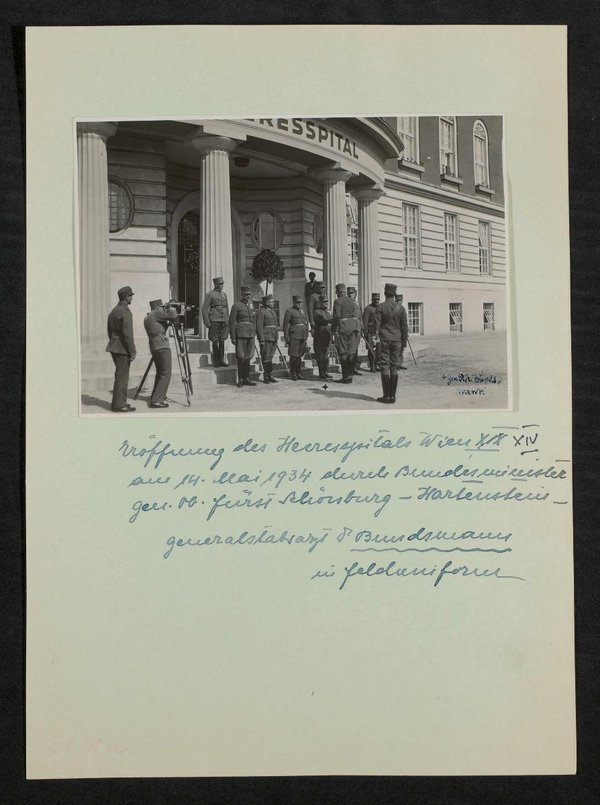 RESSPITAL
Eröffnung des Heeresspitals Wien XIX XIV
am 14. Mai 1934 durch Bundesminister
gen. Ob. Fürst Schönburg – Hartenstein –
generalstabsarzt Dr Bundsmann
in Felduniform